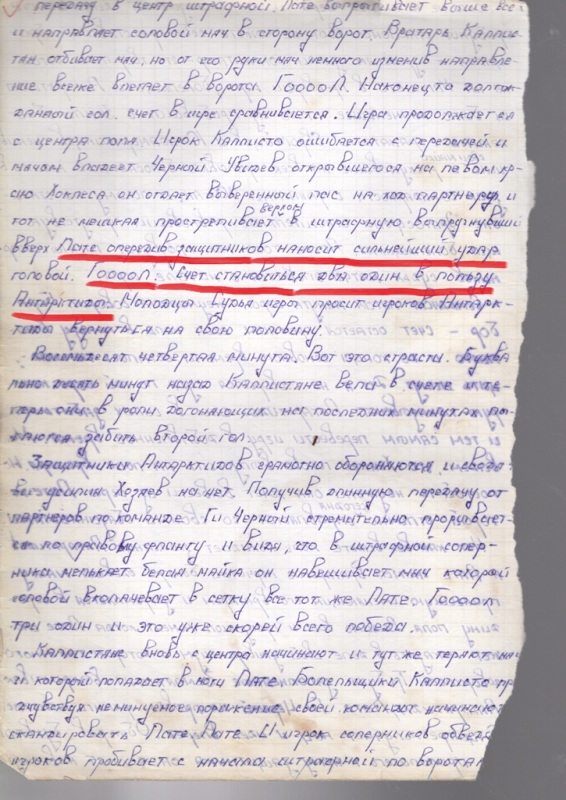 передачу в центр штрафной. Пате выпрыгивает выше все
и направляет головой мяч в сторону ворот. Вратарь Каллис-
тян отбивает мяч, но от его руки мяч немного изменив направле-
ние всёже влетает в ворота. Гооool. Наконец то долгож-
данный гол. счет в игре сравнивается. Игра продолжается
с центра поля. Игрок Каллисто ошибается с передачей и
мячом владеет Черный. Увидев открывшегося на левом кр-
аю Хоклеса он отдает выверенный пас на ход партнеру и
тот не мешкая простреливает верхом в штрафную выпрыгнувший
вверх Пате опередив защитников наносит сильнейший удар
головой. Гоооол! Счет становиться два один в пользу
Антарктиды. Молодцы. Судья игры просит игроков Антарк-
тиды вернуться на свою половину.
Восемьдесят четвертая минута. Вот это страсти. Буква
льно десять минут назад Каллистяне вели в счете и те-
перь они в роли догоняющих на последних минутах пы-
таются забить второй гол.
Защитники Антарктидов грамотно обороняются и сводят
все усилия хозяев на нет. Получив длинную передачу от
партнеров по команде Ги Черный стремительно прорывает-
ся по правому флангу и видя, что в штрафной сопер-
ника мелькает белая майка он навешивает мяч который
головой вколачивает в сетку все тот же Пате Гоооол
три один и это уже скорей всего победа.
Каллистяне вновь с центра начинают и тут же теряют мя
ч который попадает в ноги Пате Болельщики Каллисто пр
едчувствуя неминуемое поражение своей команды начинают
скандировать Пате Пате И игрок соперников обвед
игроков пробивает с начала штрафной по воротам